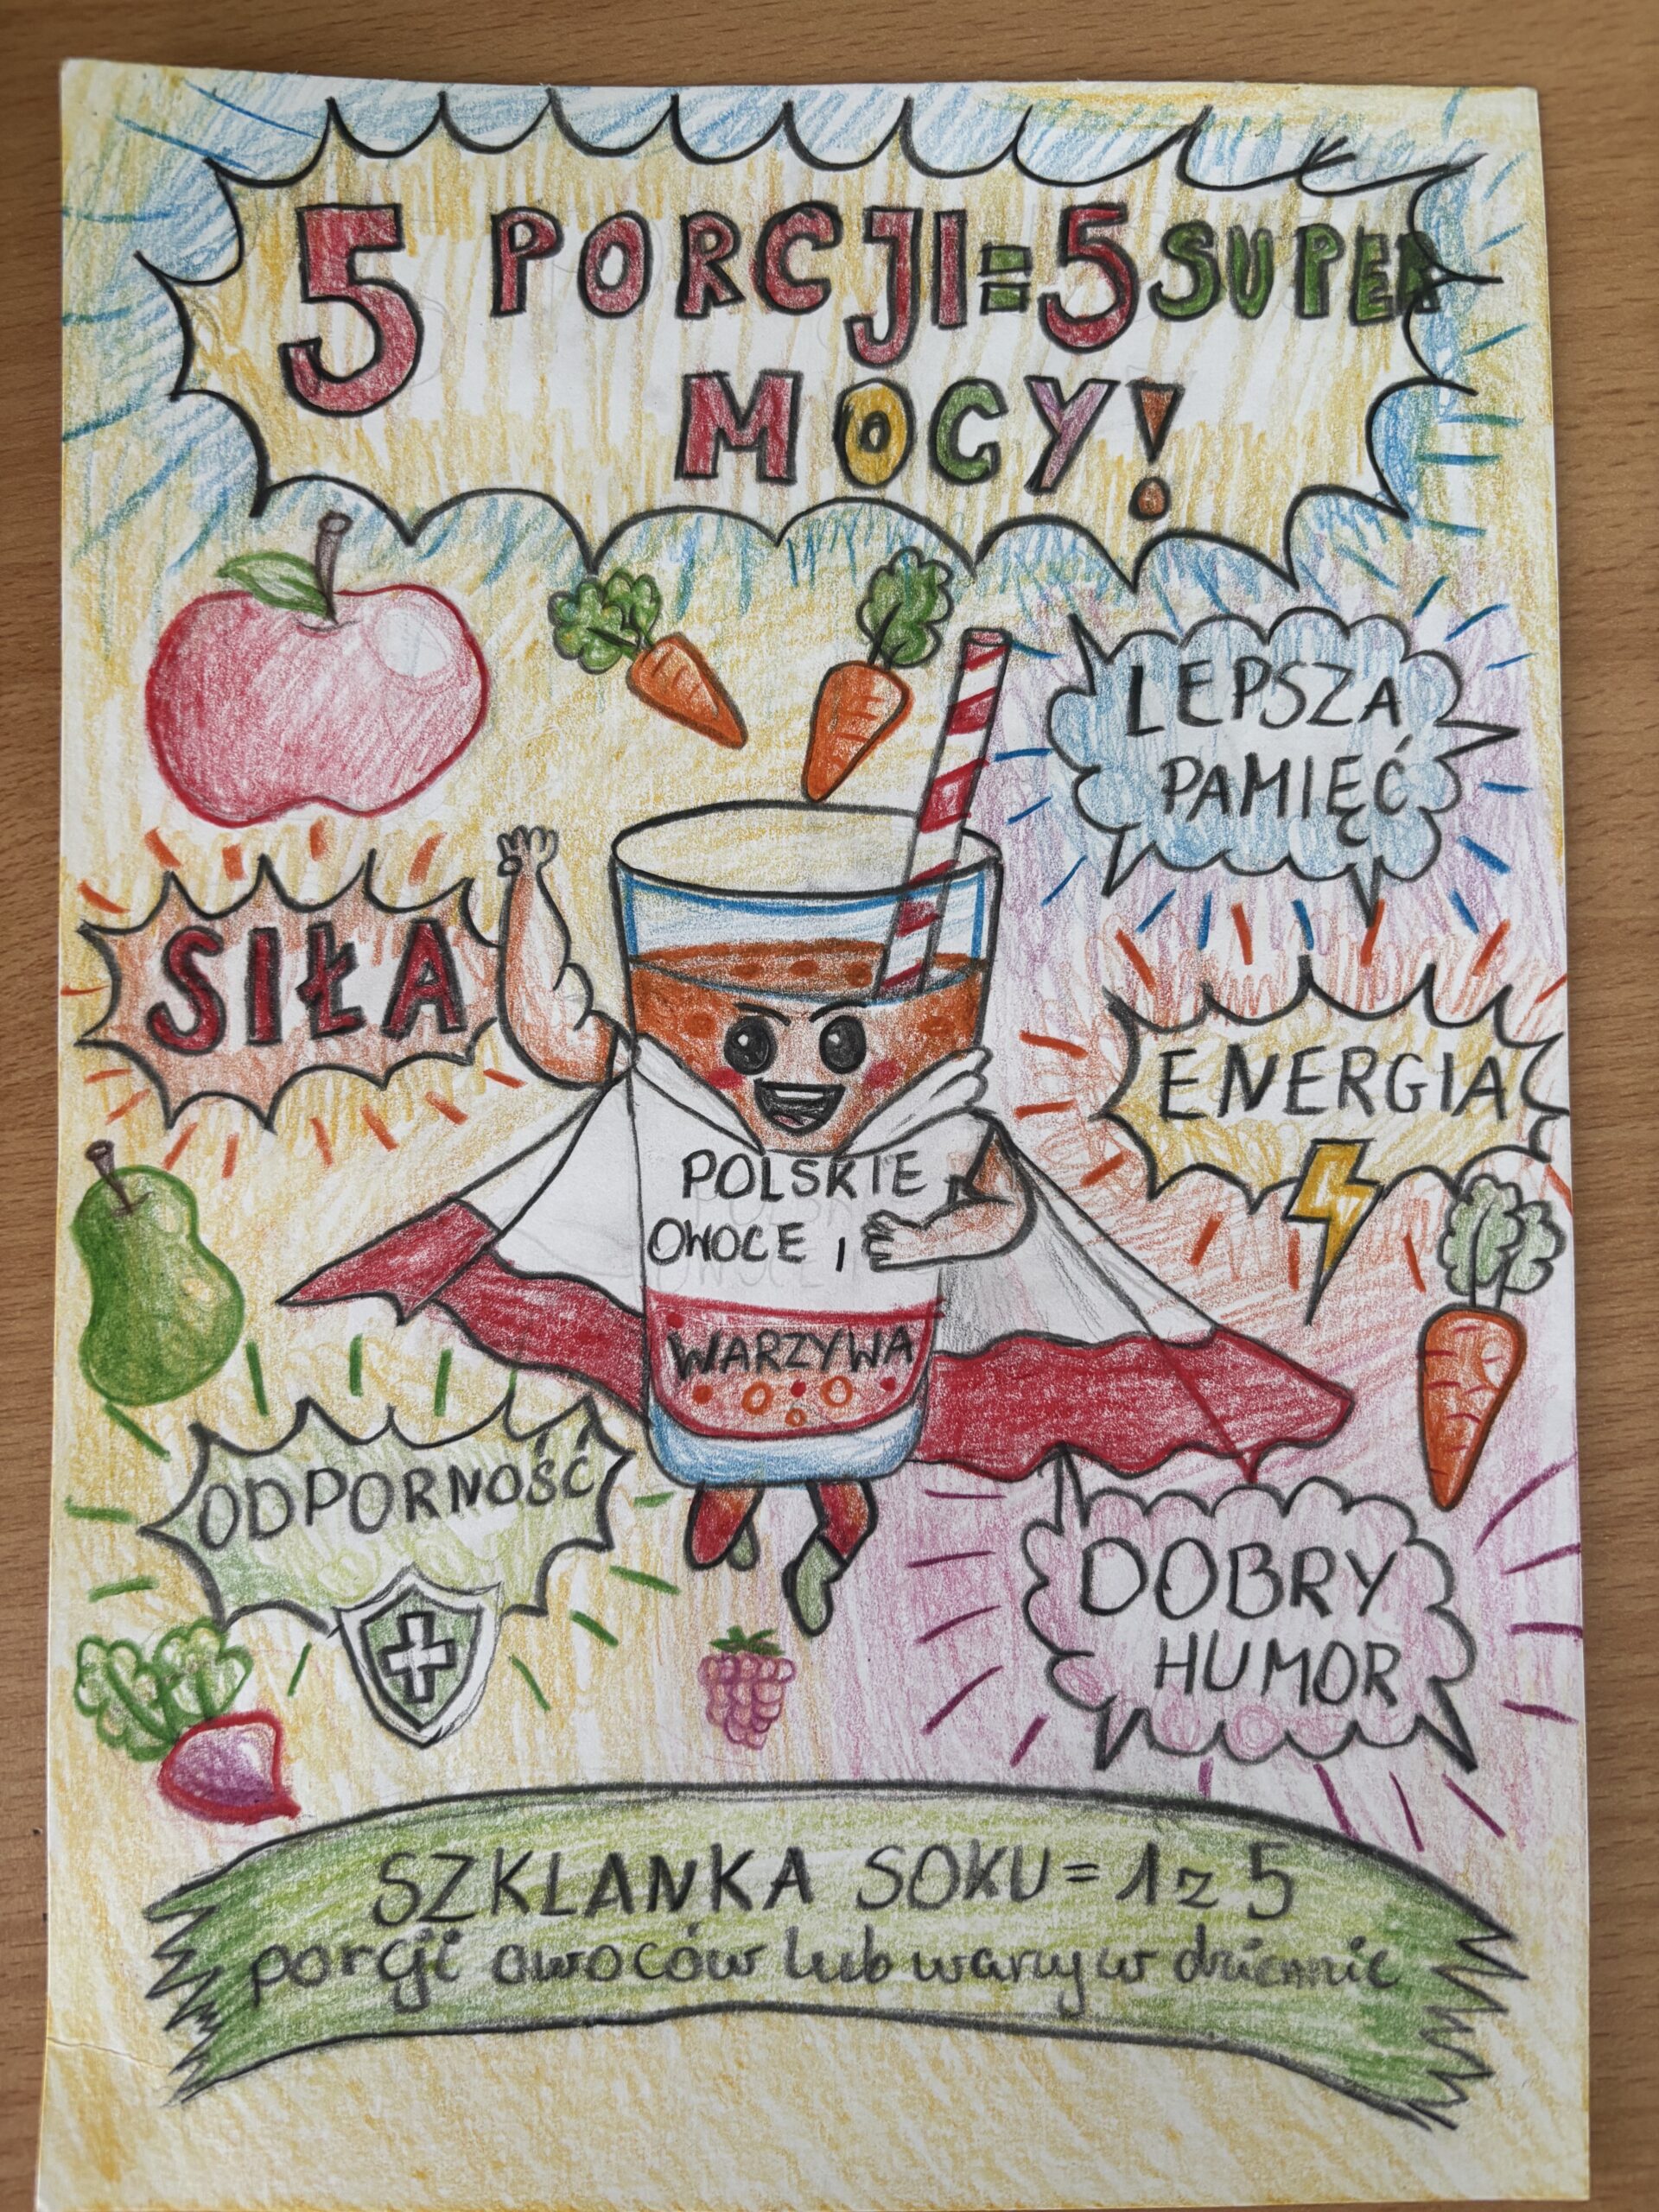 5 PORCJI=5 SUPER
MOCY!
LEPSZA
PAMIĘĆ
SIŁA
ENERGIA
POLSKIE
OWOCE I
WARZYWA
ODPORNOŚĆ
DOBRY
HUMOR
SZKLANKA SOKU=1 z 5
porcji owoców lub warzyw dziennie